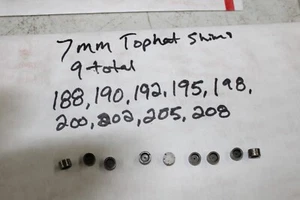 7mm Tophat Shims
9 total
188, 190, 192, 195, 198,
200, 202, 205, 208